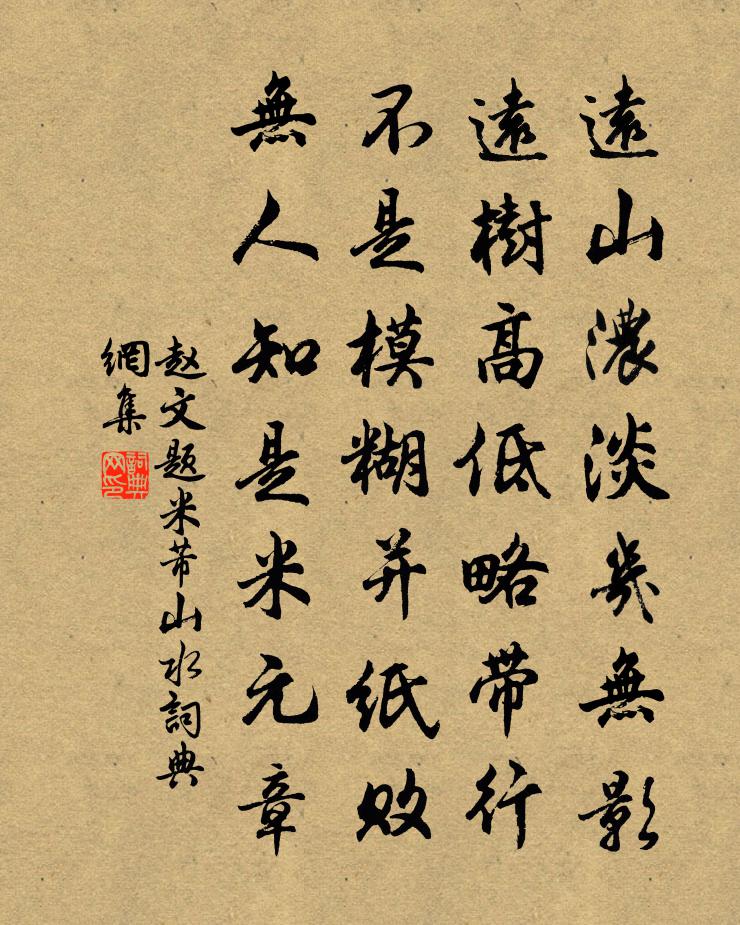 遠山濃淡幾無影
遠樹高低略帶行
不是模糊并紙敗
無人知是米元章
赵文题米芾山水詞典
網集
詞典
网印